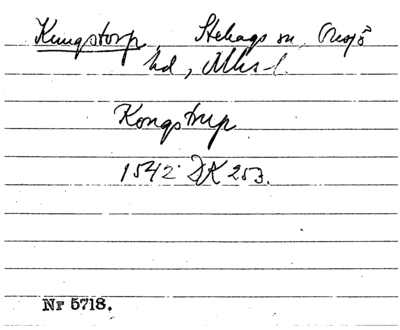 Kungstorp, Stehags sn, Onsjö
hd, Mlhs l.
Kongstrup
1542 DK 253.
Nr 5718.